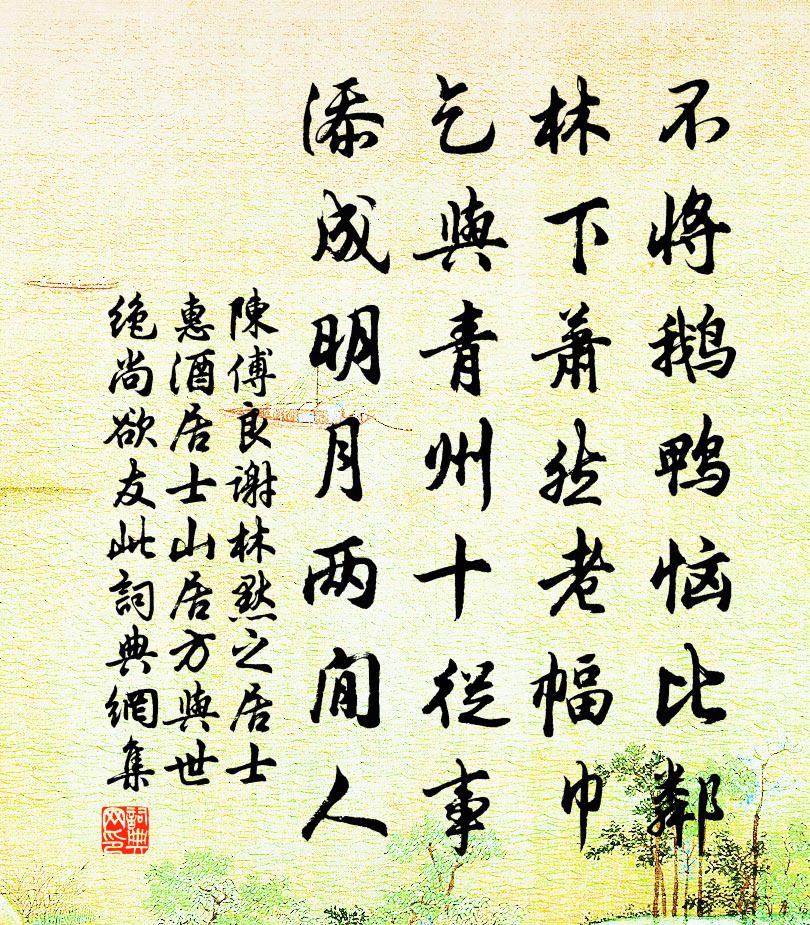 不将鹅鸭恼比鄰
林下萧然老幅巾
乞與青州十從事
添成明月两閒人
陳傅良谢林黙之居士
惠酒居士山居方與世
绝尚欲友此詞典網集
詞典网印